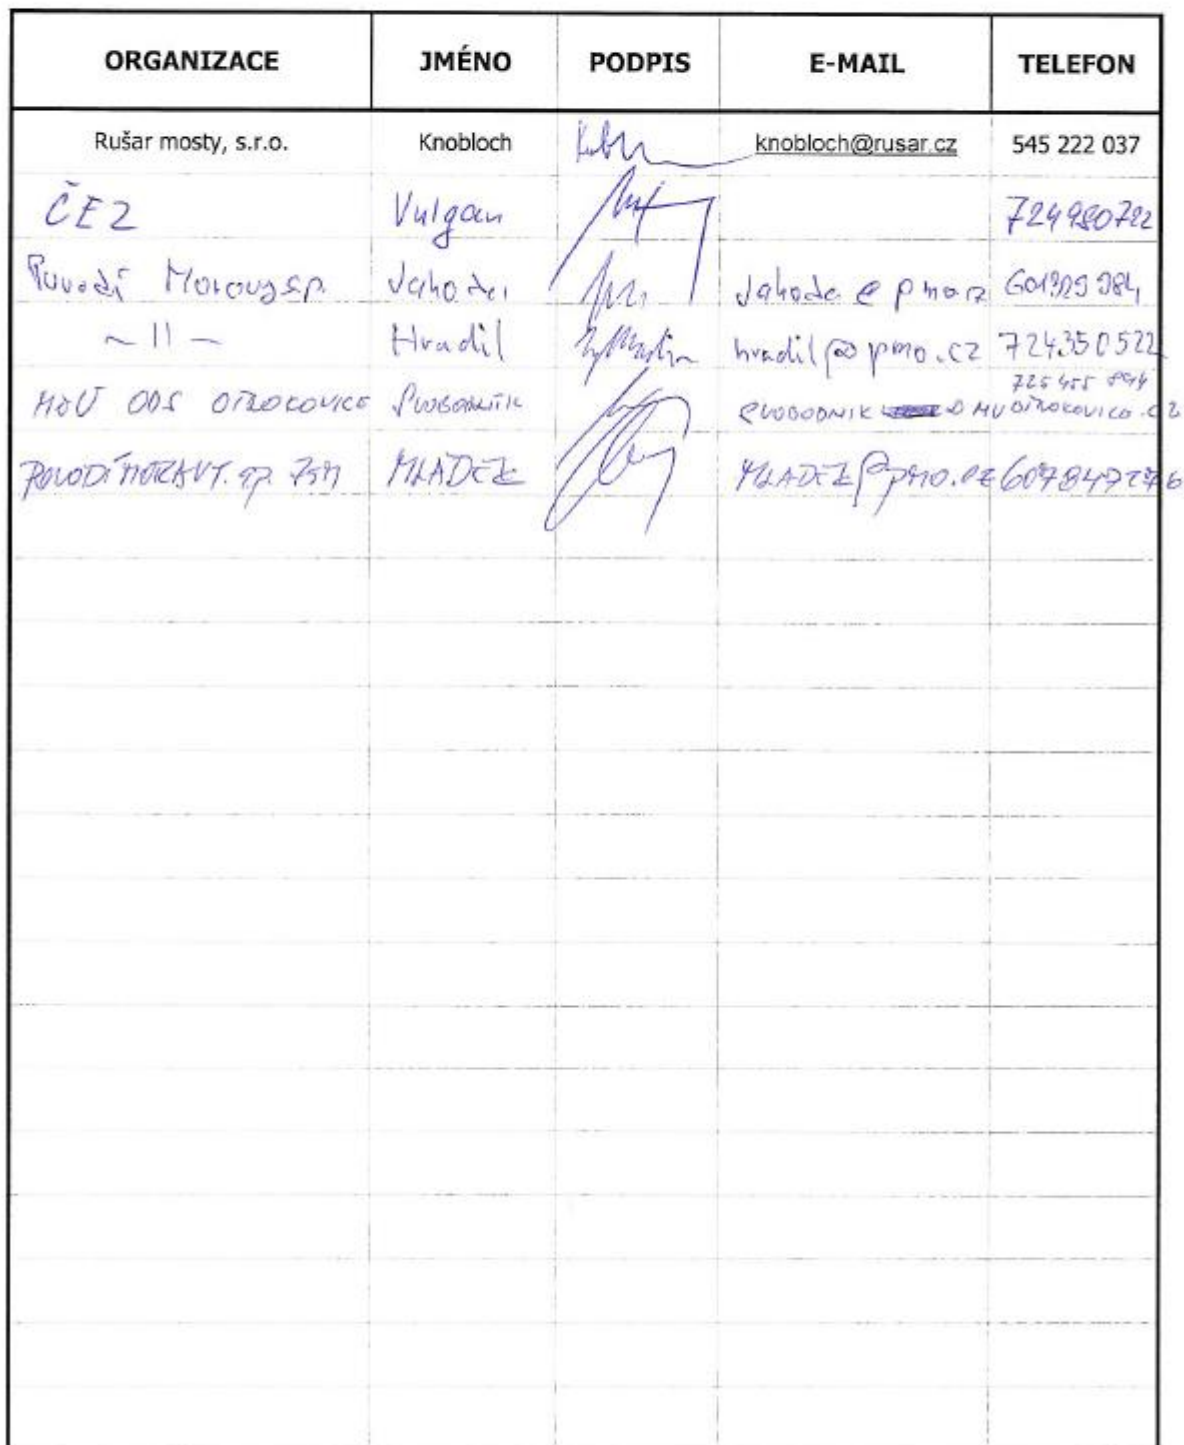 ORGANIZACE JMÉNO PODPIS E-MAIL TELEFON
Rušar mosty, s.r.o. Knobloch knobloch@rusar.cz 545 222 037
ČEZ Vulgan 724980722
Povodí Moravy s.p. Jahoda Jahoda@pmo.cz
~ 11 - Hradil hradil@pmo.cz 724350522
MěÚ ODS OTROKOVICE SVOBODNÍK
SVOBODNIK @ MUOTROKOVICE.CZ
POVODÍ MORAVY. s.p. MLÁDEK MLADEK@pmo.cz 607847276